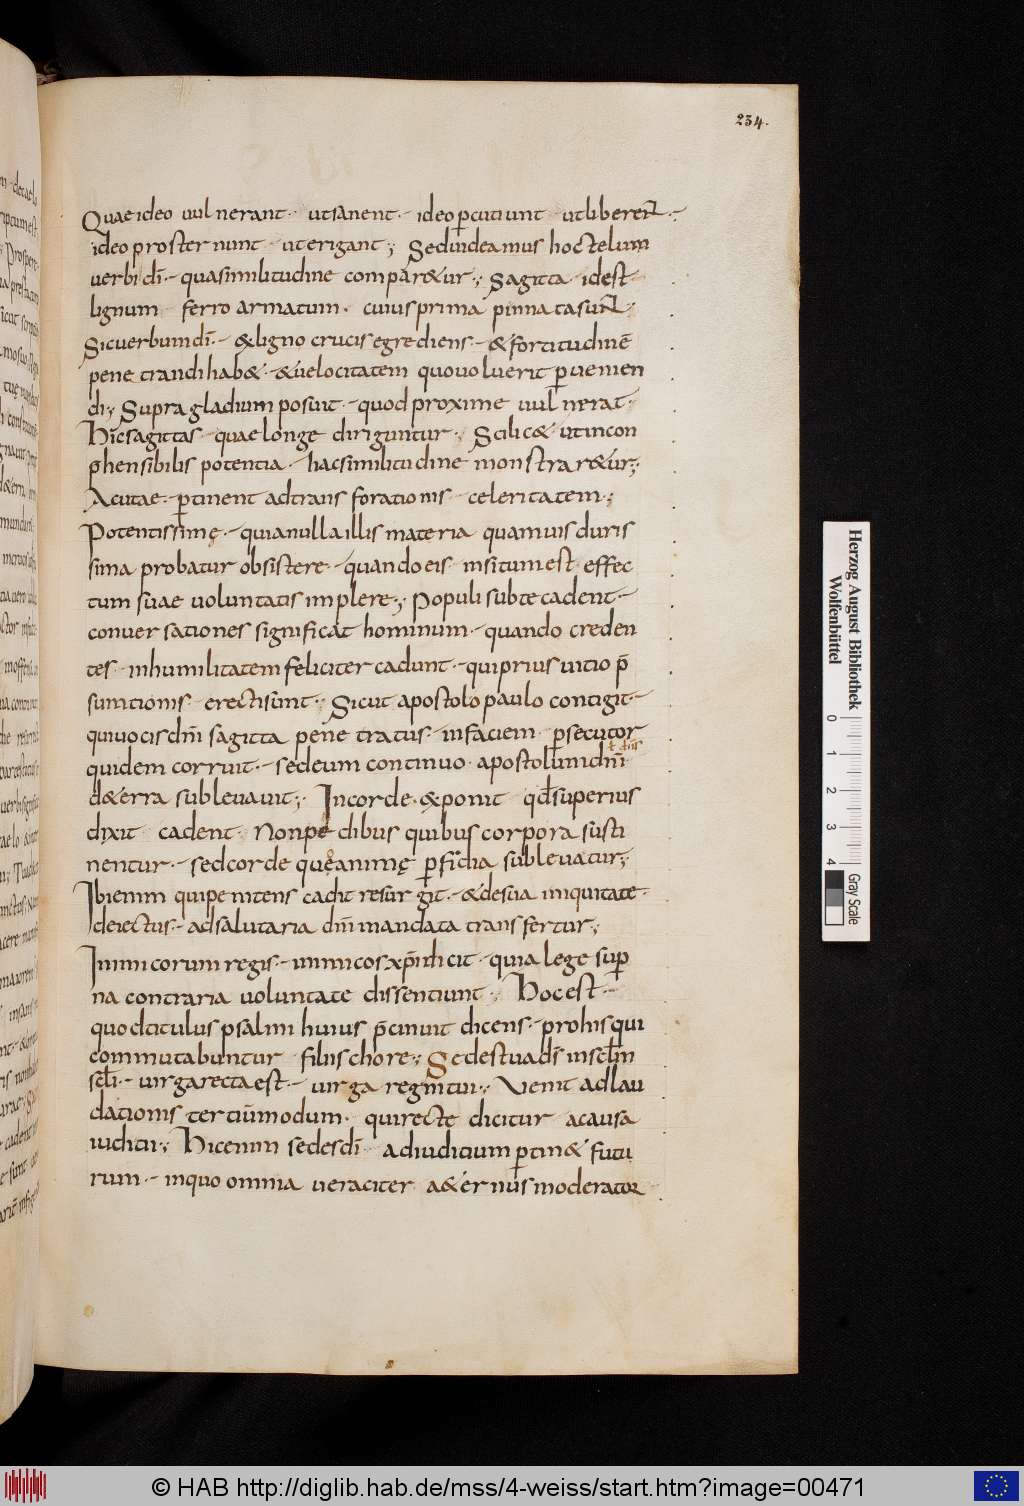 234.
Quae ideo uulnerant · ut sanent · ideo percutiunt · ut liberent ·
ideo prosternunt · ut erigant; Sed uideamus hoc telum
uerbi dī · qua similitudine comparetur; Sagitta · id est
lignum ferro armatum · cuius prima pinnata sunt;
Sic uerbum dī · & ligno crucis egrediens · & fortitudinē
penetrandi hab& · & uelocitatem quo uoluerit peruenien
di; Supra gladium posuit · quod proxime uulnerat ·
Hic sagittas · quae longe diriguntur; Scilic& ut incon
p̄hensibilis potentia · hac similitudine monstrar&ur;
Acutae · pertinent ad transforationis celeritatem;
Potentissimę · quia nulla illis materia quamuis duris
sima probatur obsistere · quando eis insitum est effec
tum suae uoluntatis implere; Populi sub te cadent ·
conuersationes significat hominum · quando creden
tes · in humilitatem feliciter cadunt · qui prius uitio p̄
sumtionis erecti sunt; Sicut apostolo paulo contigit ·
qui uocis dnī sagitta penetratus · in faciem persecutor
quidem corruit · sed eum continuo · apostolum dnī
ł dn̄s
d& erra subleuauit; In corde · exponit qđ superius
dixit cadent · Non pedibus quibus corpora susti
nentur · sed corde quę animę perfidia subleuatur;
Ibi enim qui penitens cadit resurgit · & de sua iniquitate ·
deiectus · ad salutaria dnī mandata transfertur;
Inimicorum regis · inimicos xp̄i dicit · quia lege super
na contraria uoluntate dissentiunt; Hoc est ·
quod titulus psalmi huius p̄cinuit dicens · pro his qui
commutabuntur filiis chore; Sedes tua dš in sclm
scli · uirga recta est · uirga regni tui; Uenit ad lau
dationis tertiū modum · qui recte dicitur a causa
iudicii; Hic enim sedes dī ad iudicium pertin& futu
rum · in quo omnia ueraciter a&ernus moderator
Herzog August Bibliothek
Wolfenbüttel
0 1 2 3 4
Gray Scale
© HAB http://diglib.hab.de/mss/4-weiss/start.htm?image=00471